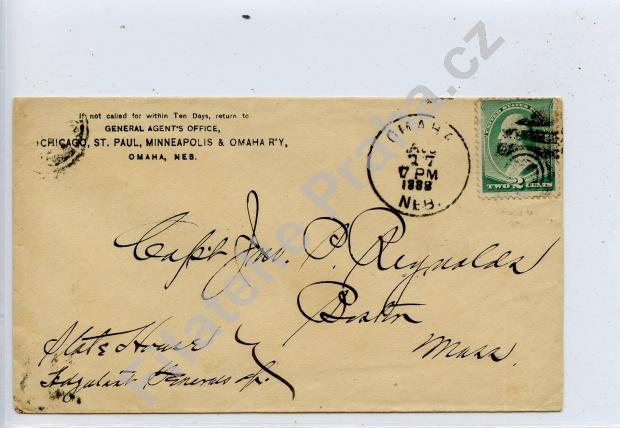 If not called for within Ten Days, return to
GENERAL AGENT'S OFFICE,
CHICAGO, ST. PAUL, MINNEAPOLIS & OMAHA R'Y,
OMAHA, NEB.
OMAHA
AUG
17
7 PM
1888
NEB.
UNITED STATES
TWO 2 CENTS
Capt. Jno. P. Reynolds
Boston
Mass.
State House
Adjutant Generals of.
Filatelie Praha.cz